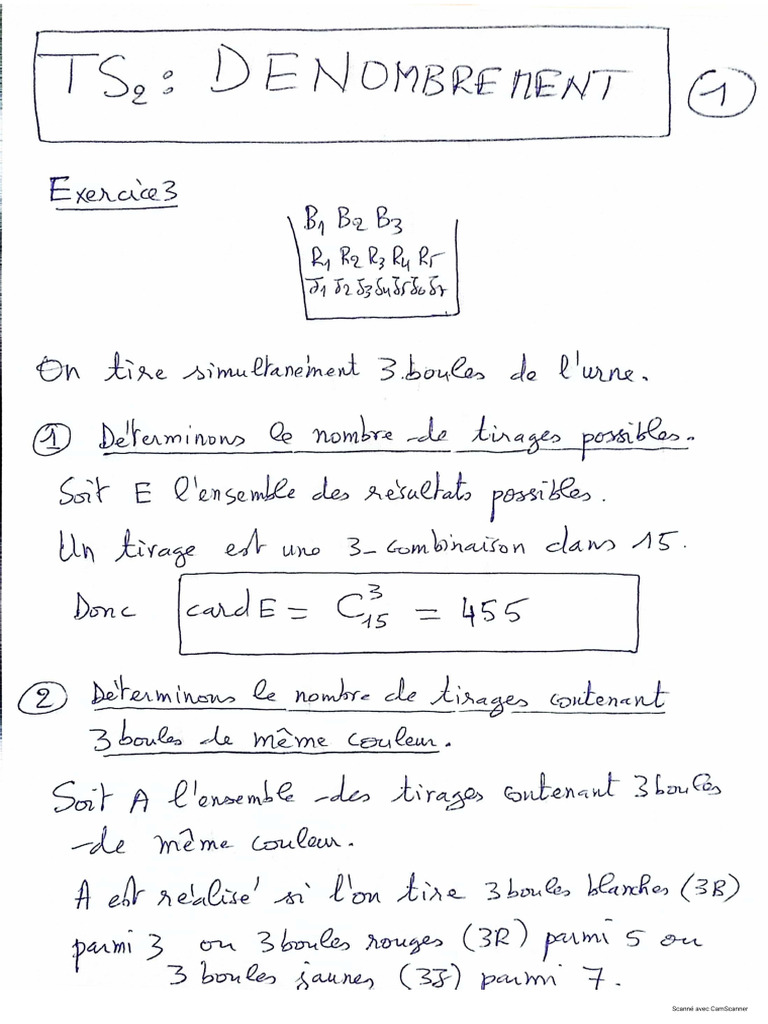 TS₂ : DENOMBREMENT
1
Exercice 3
B₁ B₂ B₃
R₁ R₂ R₃ R₄ R₅
J₁ J₂ J₃ J₄ J₅ J₆ J₇
On tire simultanément 3 boules de l'urne.
① Déterminons le nombre de tirages possibles.
Soit E l'ensemble des résultats possibles.
Un tirage est une 3-combinaison dans 15.
Donc card E = C₁₅³ = 455
② Déterminons le nombre de tirages contenant
3 boules de même couleur.
Soit A l'ensemble des tirages contenant 3 boules
de même couleur.
A est réalisé si l'on tire 3 boules blanches (3B)
parmi 3 ou 3 boules rouges (3R) parmi 5 ou
3 boules jaunes (3J) parmi 7.
Scanné avec CamScanner